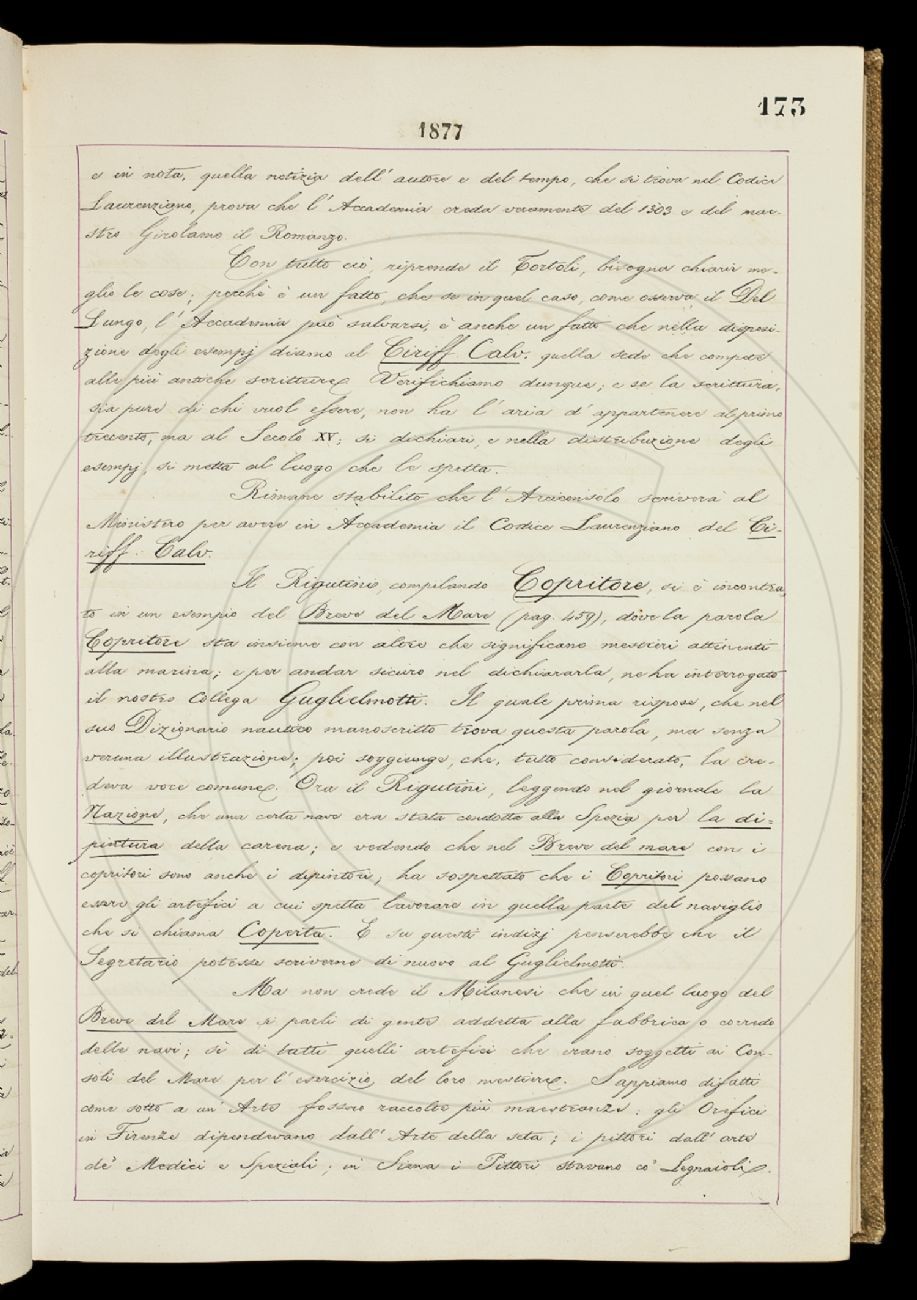 173
1877
e in nota, quella notizia dell' autore e del tempo, che si trova nel Codice
Laurenziano, prova che l' Accademia creda veramente del 1303 e del mae-
stro Girolamo il Romanzo.
Con tutto ciò, riprende il Tortoli, bisogna chiarir me-
glio le cose; perchè è un fatto, che se in quel caso, come osserva il Del
Lungo, l' Accademia può salvarsi, è anche un fatto che nella disposi-
zione degli esempj diamo al Ciriff. Calv. quella sede che compete
alle più antiche scritture. Verifichiamo dunque; e se la scrittura,
sia pure di chi vuol essere, non ha l' aria d' appartenere al primo
trecento, ma al Secolo XV; si dichiari, e nella distribuzione degli
esempj, si metta al luogo che le spetta.
Rimane stabilito che l' Arciconsolo scriverà al
Ministro per avere in Accademia il Codice Laurenziano del Ci-
riff. Calv.
Il Rigutini, compilando Copritore, si è incontra
to in un esempio del Breve del Mare (pag. 459), dove la parola
Copritore sta insieme con altre che significano mestieri attinenti
alla marina; e per andar sicuro nel dichiararla, ne ha interrogato
il nostro Collega Guglielmotti. Il quale prima rispose, che nel
suo Dizionario nautico manoscritto trova questa parola, ma senza
veruna illustrazione; poi soggiunge, che, tutto considerato, la cre-
deva voce comune. Ora il Rigutini, leggendo nel giornale la
Nazione, che una certa nave era stata condotta alla Spezia per la di-
pintura della carena; e vedendo che nel Breve del mare con i
copritori sono anche i dipintori; ha sospettato che i Copritori possano
essere gli artefici a cui spetta lavorare in quella parte del naviglio
che si chiama Coperta. E su questi indizj penserebbe che il
Segretario potesse scriverne di nuovo al Guglielmotti.
Ma non crede il Milanesi che in quel luogo del
Breve del Mare si parli di gente addetta alla fabbrica o corredo
delle navi; sì di tutti quelli artefici che erano soggetti ai Con-
soli del Mare per l' esercizio del loro mestiere. Sappiamo difatti
come sotto a un' Arte fossero raccolte più maestranze: gli Orefici
in Firenze dipendevano dall' Arte della seta; i pittori dall' arte
de' Medici e Speziali; in Siena i Pittori stavano co' Legnaioli.